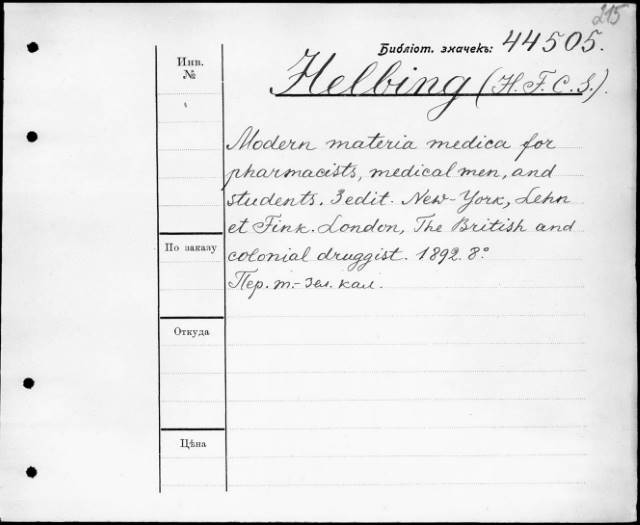 215
Библіот. значекъ: 44505.
Инв.
№
Helbing (H. F. C. S.).
Modern materia medica for
pharmacists, medical men, and
students. 3 edit. New-York, Lehn
et Fink. London, The British and
По заказу
colonial druggist. 1892. 8º
Пер. т.-зел. кал.
Откуда
Цѣна